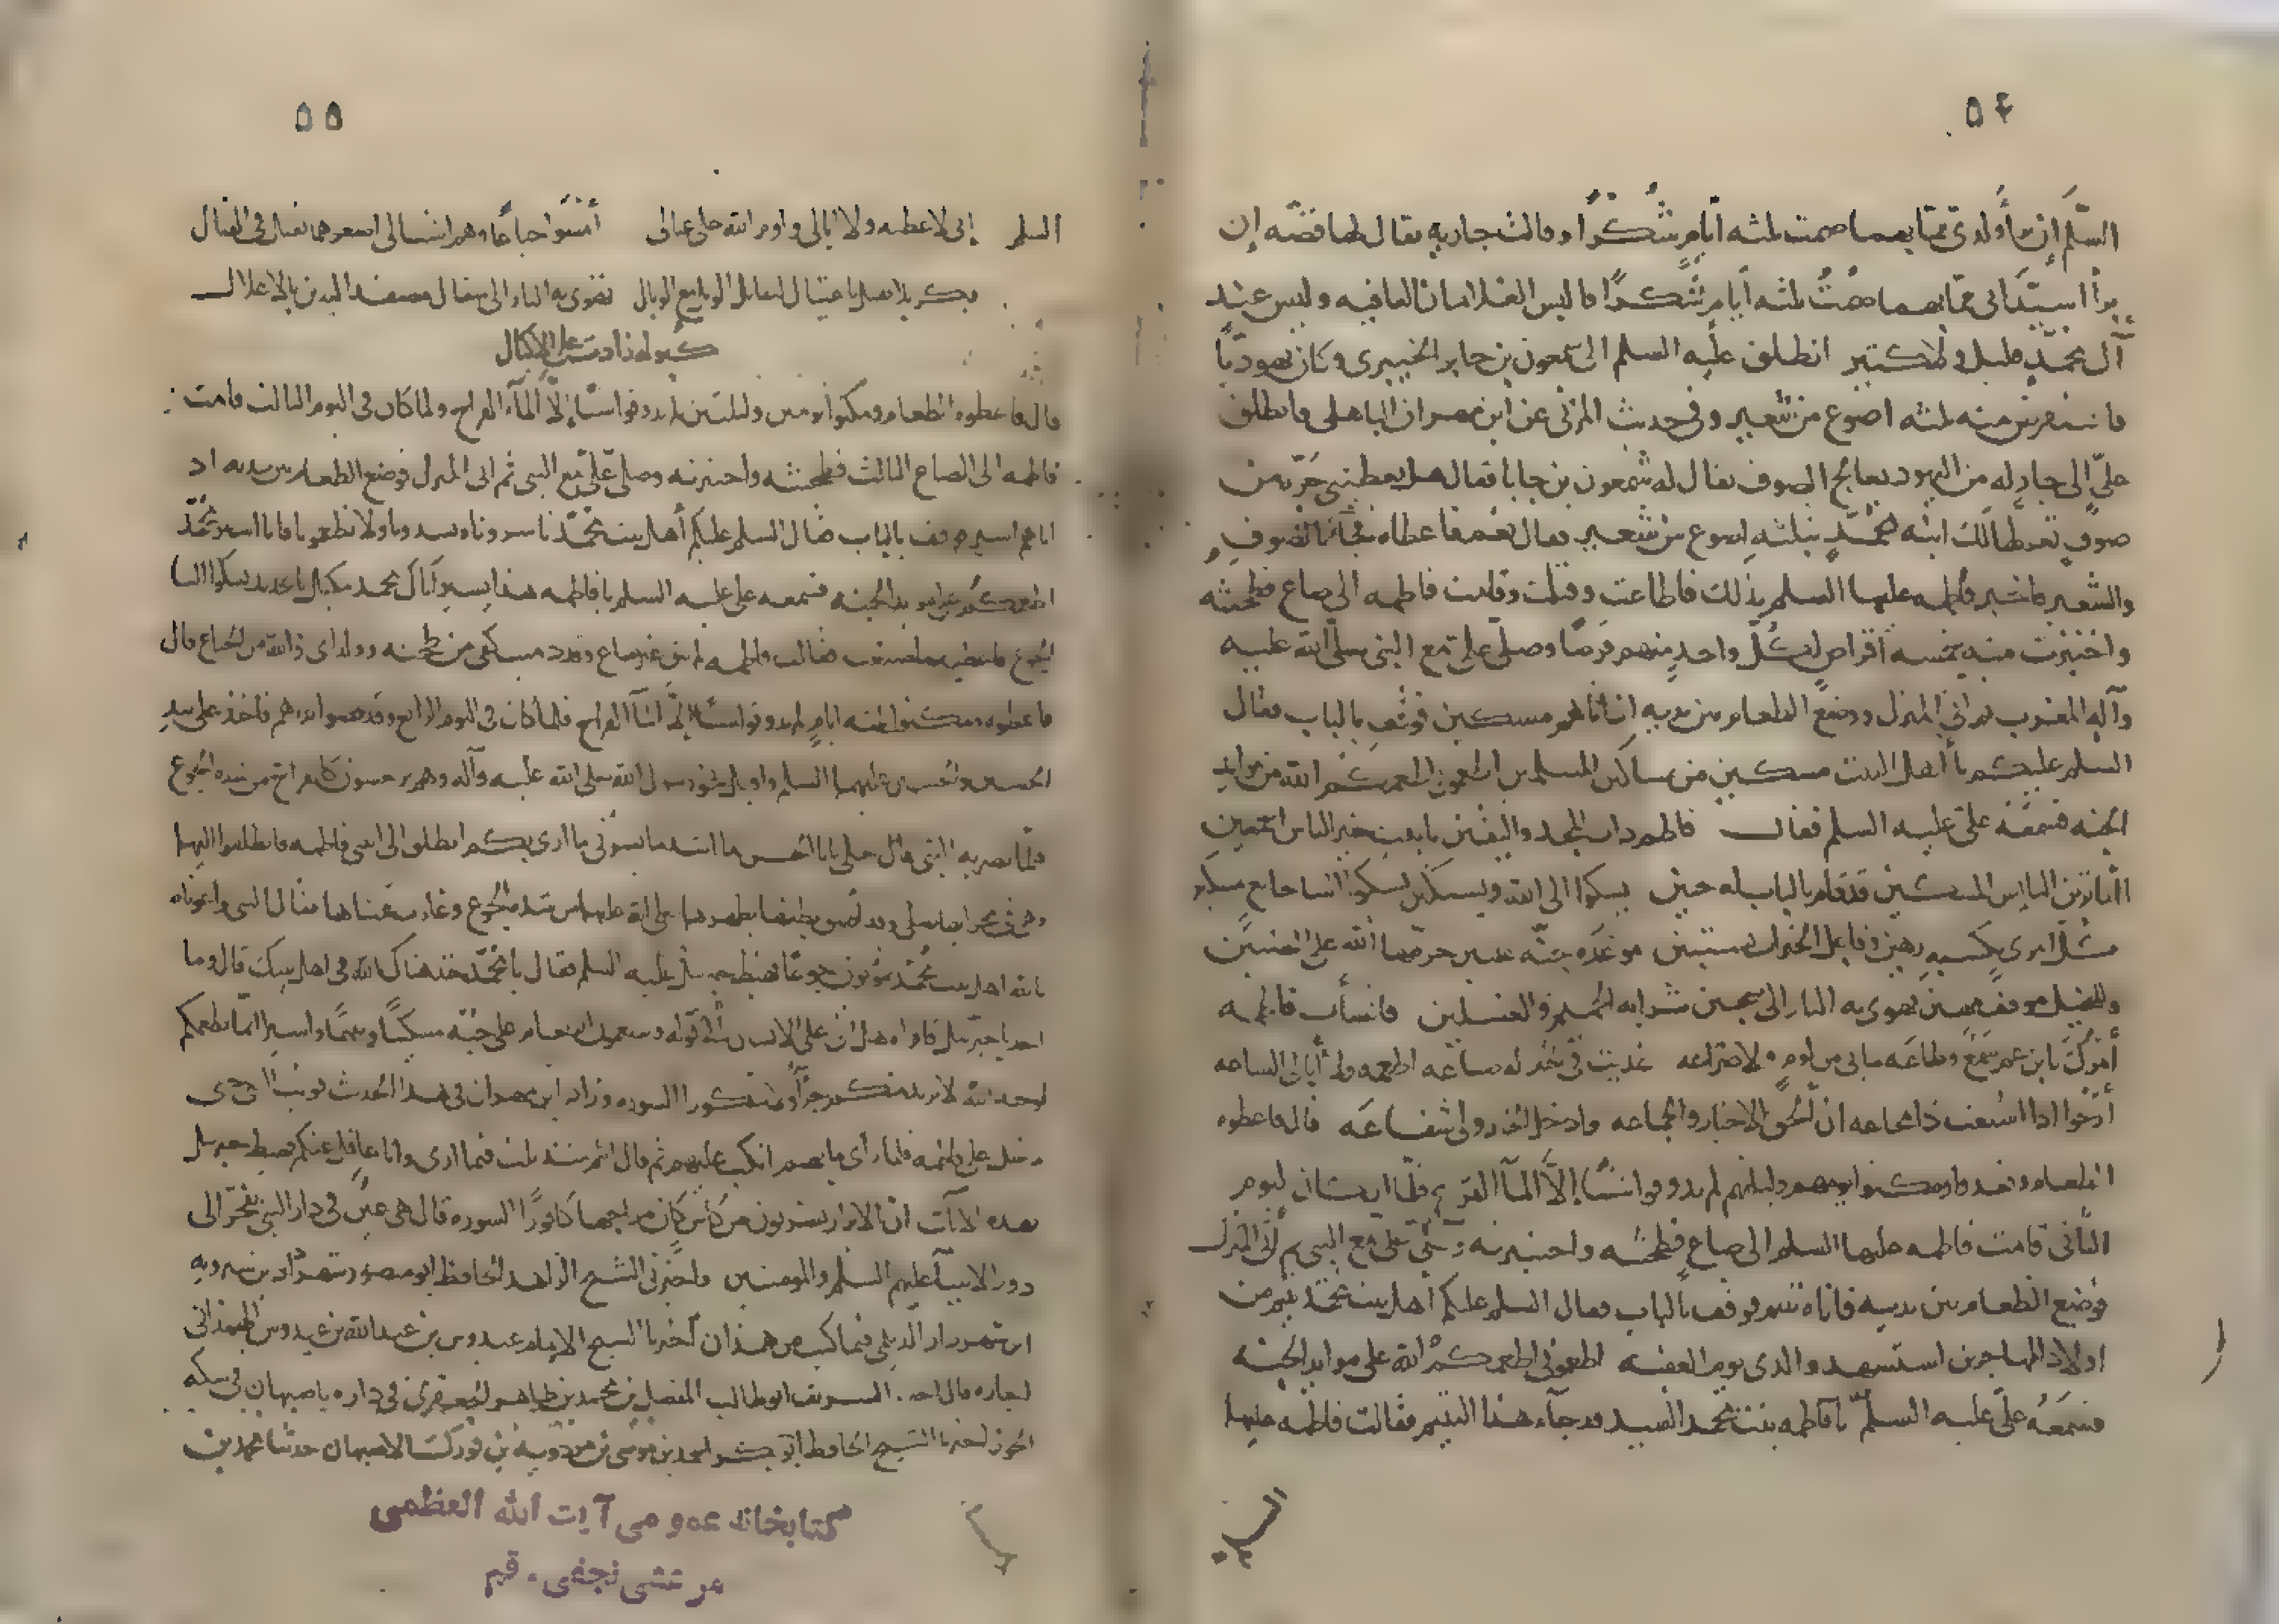 ٥٤
السلم إن برأ ولدي مما بهما صمت ثلثه أيام شكرا وقالت جاريه يقال لها فضه إن
برأ سيداي مما بهما صمت ثلثه أيام شكرا فالبس الغلامان العافيه وليس عند
آل محمد قليل ولا كثير انطلق علي عليه السلم الى شمعون بن حابر الخيبري وكان يهوديا
فاستقرض منه ثلثه اصوع من شعير وفي حديث المزني عن ابن مهران الباهلي فانطلق
علي إلى جار له من اليهود يعالج الصوف يقال له شمعون بن جابا فقال هل تعطيني جزة من
صوف تغزلها لك ابنه محمد بثلثه اصوع من شعير فقال نعم فاعطاه فجاء بالصوف
والشعير فاخبر فاطمه عليها السلم بذلك فاطاعت وقبلت وقامت فاطمه الى صاع فطحنته
واختبزت منه خمسه اقراص لكل واحد منهم قرصا وصلى علي مع النبي صلى الله عليه
وآله المغرب ثم اتى المنزل ووضع الطعام بين يديه إذ أتاهم مسكين فوقف بالباب فقال
السلم عليكم يا أهل البيت مسكين من مساكين المسلمين اطعموني اطعمكم الله من موايد
الجنه فسمعه علي عليه السلم فقال فاطم ذات المجد واليقين يا بنت خير الناس اجمعين
اما ترين البايس المسكين قد قام بالباب له حنين يشكوا الى الله ويستكين يشكوا الينا جايع
كل امرئ بكسبه رهين وفاعل الخيرات يستبين موعده جنه عليين حرمها الله على الضنين
وللبخيل موقف مهين تهوي به النار الى سجين شرابه الحميم والغسلين فانشأت فاطمه
أمرك يا ابن عم سمع وطاعه ما بي من لوم ولا ضراعه اطعمه ولا أبالي الساعه
أرجوا اذا اشبعت ذا مجاعه ان الحق الاخيار والجماعه وادخل الخلد ولي شفاعه قال فاعطوه
الطعام ومكثوا يومهم وليلتهم لم يذوقوا شيئا إلا المآ القراح فلما ان كان ليوم
الثاني قامت فاطمه عليها السلم الى صاع فطحنته واختبزته وصلى علي مع النبي ثم أتى المنزل
فوضع الطعام بين يديه فاتاه يتيم فوقف بالباب فقال السلم عليكم أهل بيت محمد يتيم من
اولاد المهاجرين استشهد والدي يوم العقبه اطعموني اطعمكم الله على موايد الجنه
فسمعه علي عليه السلم يا فاطمه بنت محمد السيد قد جآء هذا اليتيم فقالت فاطمه عليها
السلم
٥٥
السلم إني لاعطيه ولا ابالي واوثر الله على عيالي أمسوا جياعا وهم اشبالي اصغرهم يقتل في القتال
بكربلا يقتل باغتيال لقاتله الويل مع الوبال تهوي به النار الى سفال مصفد اليدين بالاغلال
كبوله زادت على الاكبال
قال فاعطوه الطعام ومكثوا يومين وليلتين لم يذوقوا شيئا إلا المآء القراح ولما كان في اليوم الثالث قامت
فاطمه الى الصاع الثالث فطحنته واختبزته وصلى علي مع النبي ثم اتى المنزل فوضع الطعام بين يديه اذ
اتاهم اسير فوقف بالباب فقال السلم عليكم أهل بيت محمد تاسروننا وتشدوننا ولا تطعمونا فانا اسير محمد
فسمعه علي عليه السلم يا فاطمه
الجوع فقالت فاطمه لم يبق غير صاع
فاعطوه ومكثوا ثلثه ايام لم يذوقوا شيئا إلا المآ القراح فلما كان في اليوم الرابع وقد قضوا نذرهم فاخذ علي بيد
الحسن والحسين عليهما السلم واقبل نحو رسول الله صلى الله عليه وآله وهم يرتعشون كالفراخ من شده الجوع
فلما بصر به النبي قال يا ابا الحسن ما اشد ما يسوءني ما ارى بكم انطلق الى ابنتي فاطمه فانطلقوا اليها
وهي في محرابها تصلي وقد لصق بطنها بظهرها من شده الجوع وغارت عيناها فقال النبي واغوثاه
بالله اهل بيت محمد يموتون جوعا فهبط جبرئيل عليه السلم فقال يا محمد خذ هناك الله في اهل بيتك قال وما
اخذ يا جبرئيل فاقراه هل اتى على الانسان الى قوله ويطعمون الطعام على حبه مسكينا ويتيما واسيرا انما نطعمكم
لوجه الله لا نريد منكم جزآء ولا شكورا السوره وزاد ابن مهران في هذا الحديث فوثب النبي حتى
دخل على فاطمه فلما رأى ما بهم انكب عليهم ثم قال انتم منذ ثلث فيما ارى وانا غافل عنكم فهبط جبرئيل
بهذه الايآت ان الابرار يشربون من كاس كان مزاجها كافورا السوره قال هي عين في دار النبي تفجر الى
دور الانبيآء عليهم السلم والمومنين واخبرني الشيخ الزاهد الحافظ ابو منصور شهردار بن شيرويه
ابن شهردار الديلمي فيما كتب من همذان أخبرنا الشيخ الإمام عبدوس بن عبدالله بن عبدوس الهمذاني
اجازه قال اخبرنا الشريف ابو طالب المفضل بن محمد بن طاهر الجعفري في داره باصبهان في سكه
الخوز اخبرنا الشيخ الحافظ أبو بكر احمد بن موسى بن مردويه بن فورك الاصبهاني حدثنا محمد بن
كتابخانه عمومى آيت الله العظمى
مرعشى نجفى - قم